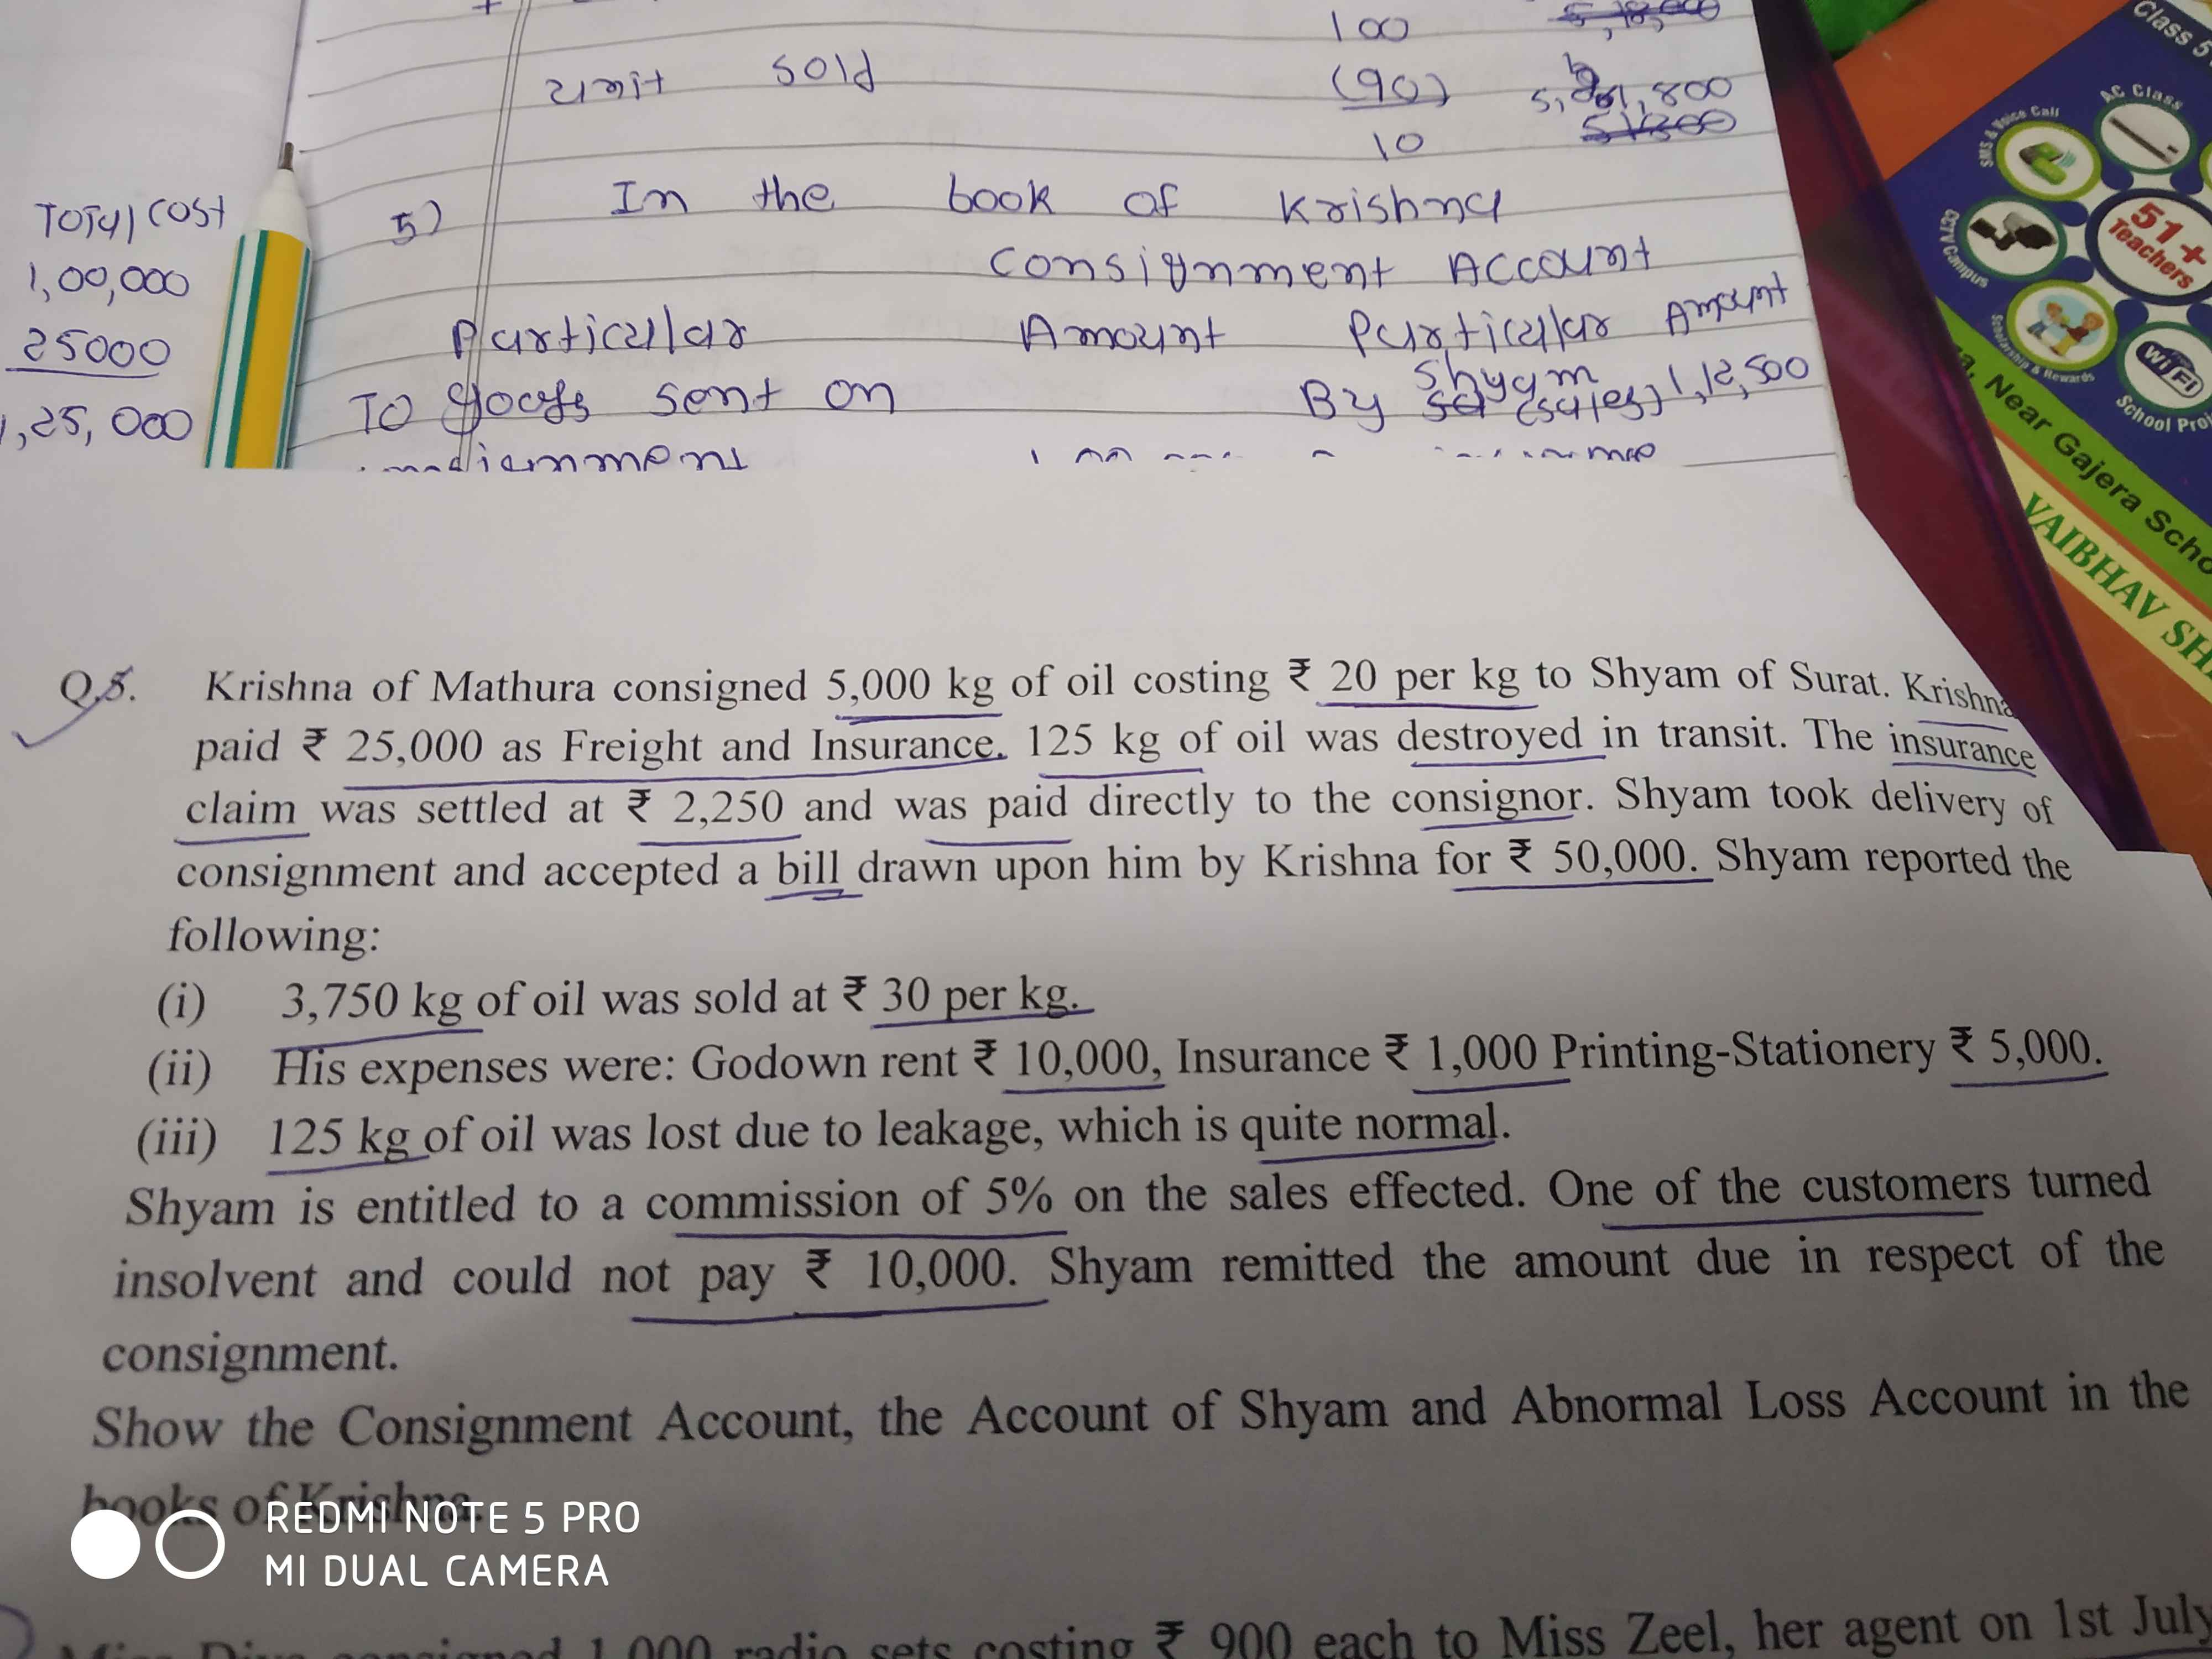 100 5,18,000
unit sold (90) 5,61,800
10 51300
Total cost
1,00,000
25000
1,25,000
5) In the book of Krishna
Consignment Account
Particular Amount Particular Amount
To goods sent on By Shyam (sales) 1,12,500
Q.5. Krishna of Mathura consigned 5,000 kg of oil costing ₹ 20 per kg to Shyam of Surat. Krishna
paid ₹ 25,000 as Freight and Insurance. 125 kg of oil was destroyed in transit. The insurance
claim was settled at ₹ 2,250 and was paid directly to the consignor. Shyam took delivery of
consignment and accepted a bill drawn upon him by Krishna for ₹ 50,000. Shyam reported the
following:
(i) 3,750 kg of oil was sold at ₹ 30 per kg.
(ii) His expenses were: Godown rent ₹ 10,000, Insurance ₹ 1,000 Printing-Stationery ₹ 5,000.
(iii) 125 kg of oil was lost due to leakage, which is quite normal.
Shyam is entitled to a commission of 5% on the sales effected. One of the customers turned
insolvent and could not pay ₹ 10,000. Shyam remitted the amount due in respect of the
consignment.
Show the Consignment Account, the Account of Shyam and Abnormal Loss Account in the
books of Krishna.
consigned 1,000 radio sets costing ₹ 900 each to Miss Zeel, her agent on 1st July
Class 5
AC Class
SMS & Voice Call
CCTV Campus
51+
Teachers
Scholarship & Rewards
WiFi
School
Near Gajera
VAIBHAV
REDMI NOTE 5 PRO
MI DUAL CAMERA